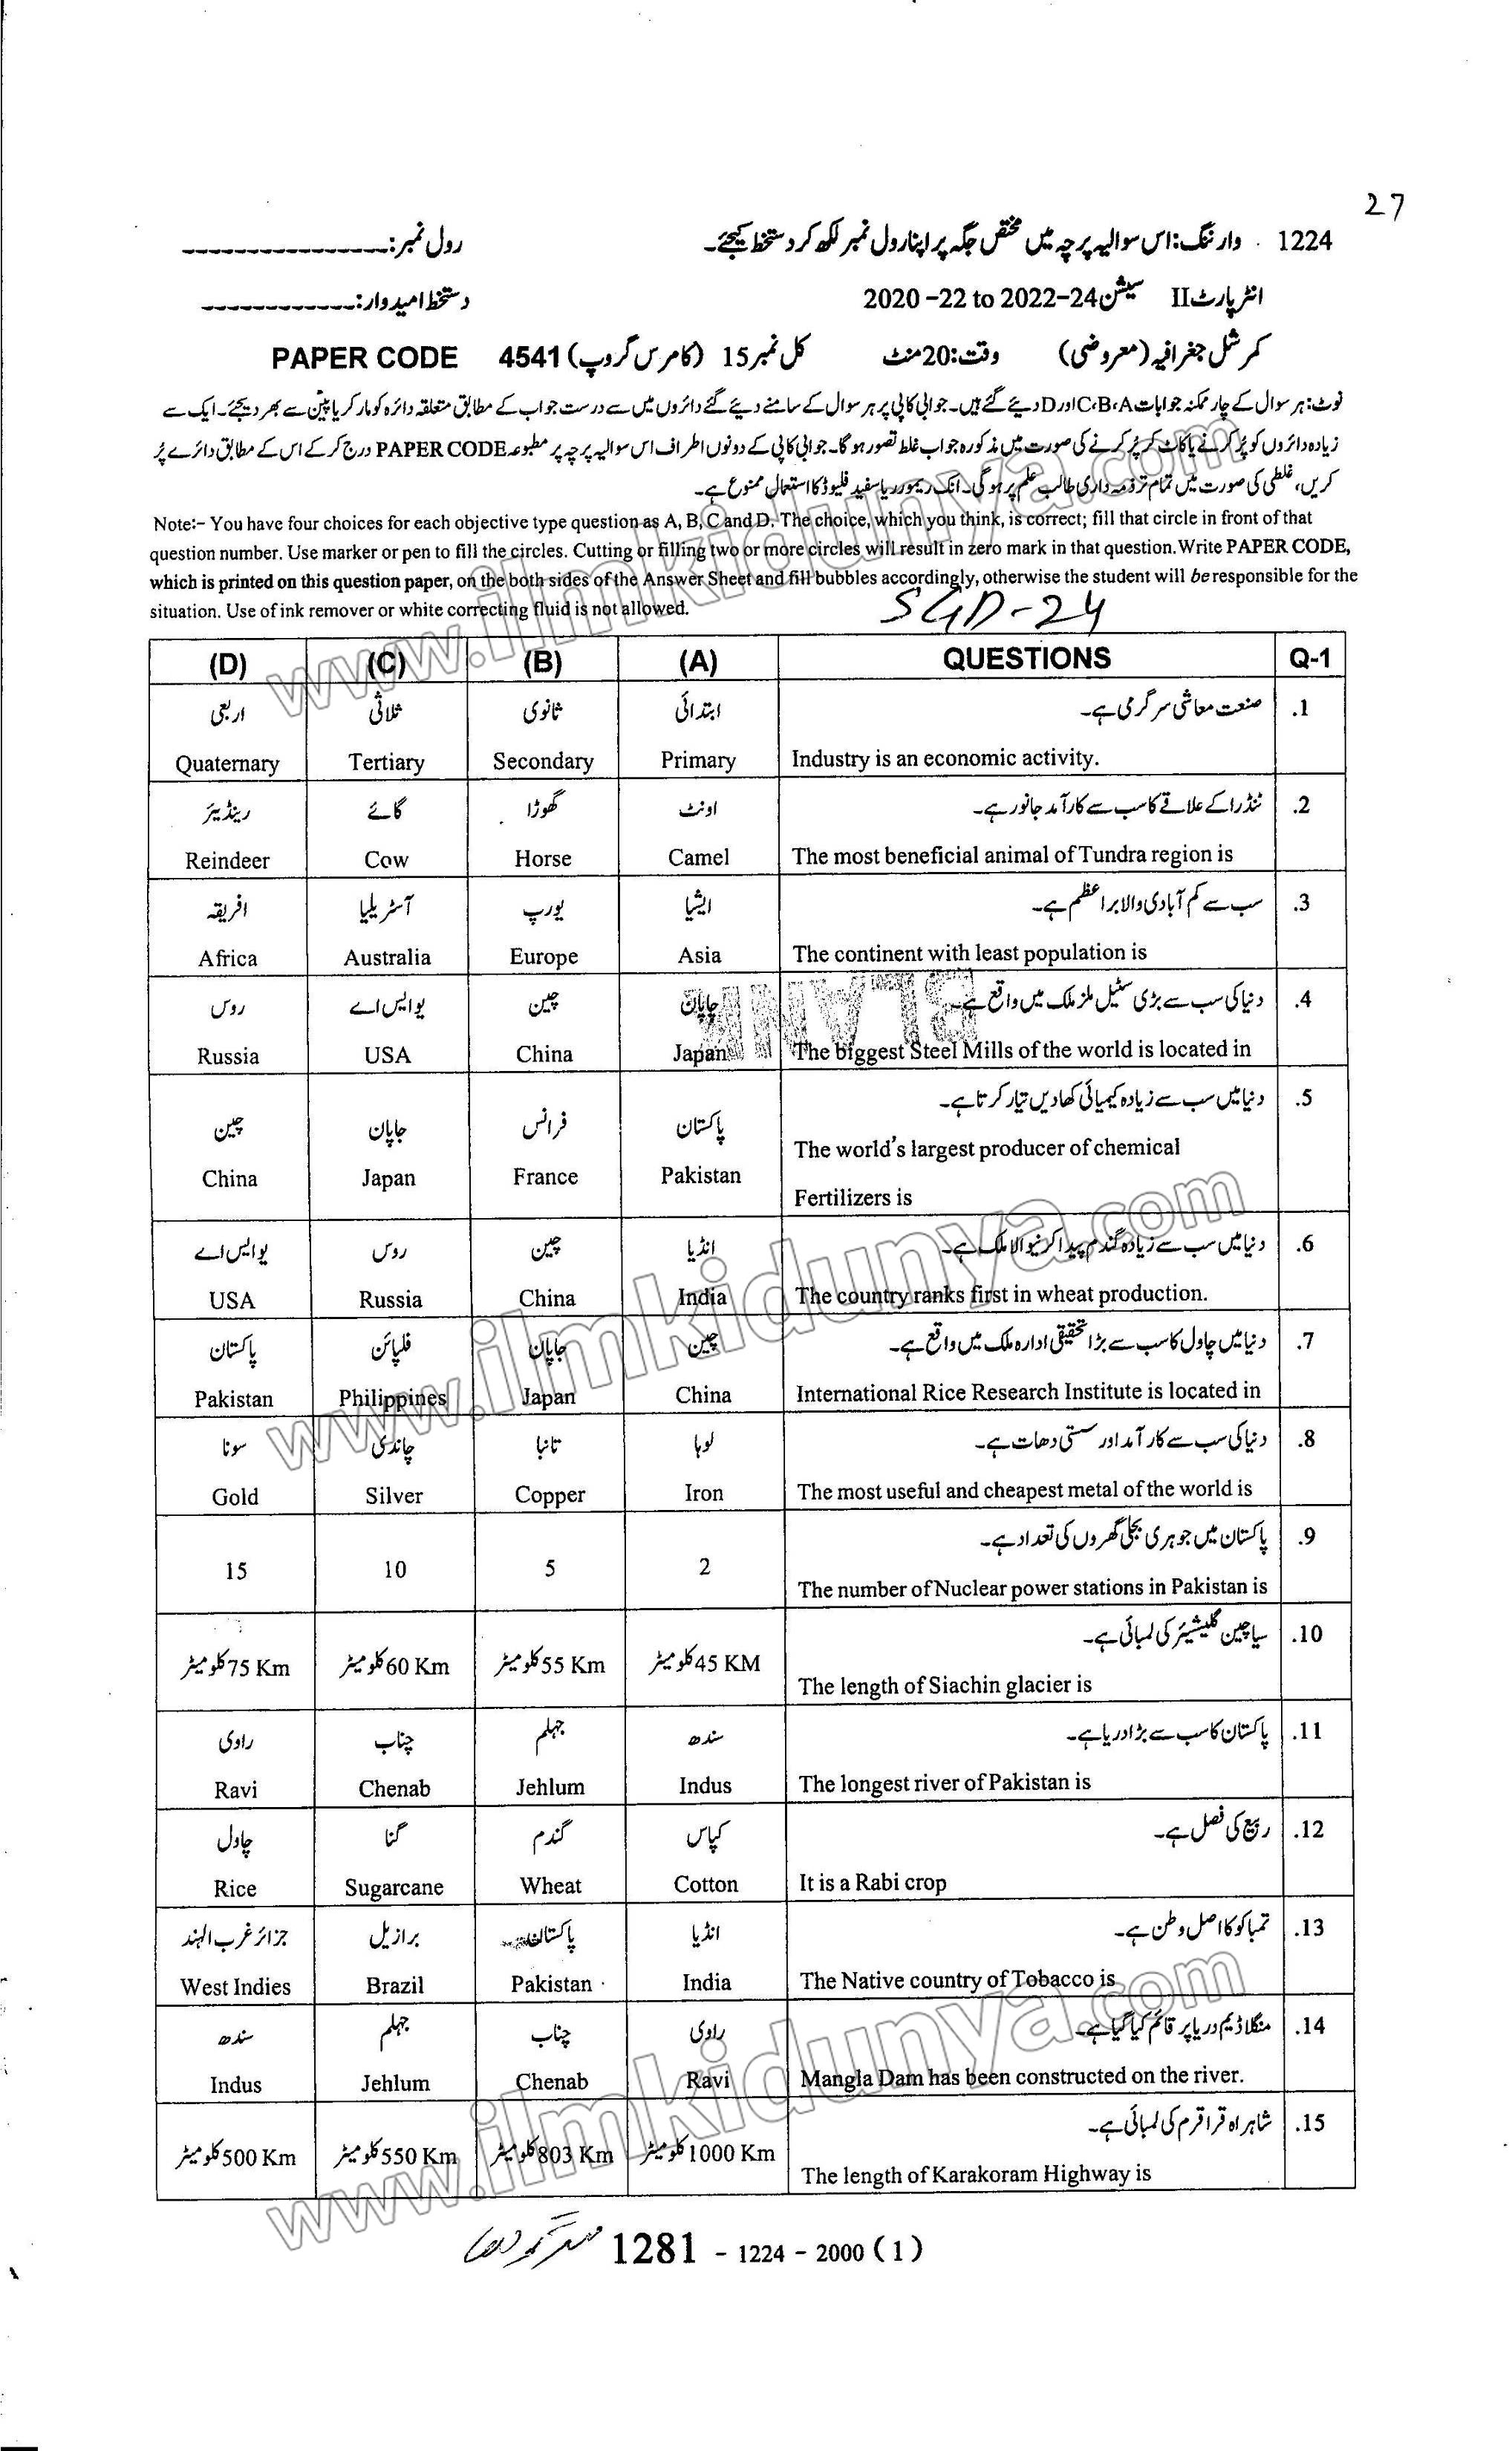 27
1224 وارننگ: اس سوالیہ پرچہ میں مختص جگہ پر اپنا رول نمبر لکھ کر دستخط کیجئے۔ رول نمبر: ---------------
انٹر پارٹ II سیشن 2020 -22 to 2022-24 دستخط امیدوار: ------------
کمرشل جغرافیہ (معروضی) وقت: 20 منٹ کل نمبر 15 (کامرس گروپ) PAPER CODE 4541
نوٹ: ہر سوال کے چار ممکنہ جوابات C،B،A اور D دیئے گئے ہیں۔ جوابی کاپی پر ہر سوال کے سامنے دیئے گئے دائروں میں سے درست جواب کے مطابق متعلقہ دائرہ کو مارکر یا پین سے بھر دیجئے۔ ایک سے
زیادہ دائروں کو پُر کرنے یا کاٹ کر پُر کرنے کی صورت میں مذکورہ جواب غلط تصور ہوگا۔ جوابی کاپی کے دونوں اطراف اس سوالیہ پرچہ پر مطبوعہ PAPER CODE درج کر کے اس کے مطابق دائرے پُر
کریں، غلطی کی صورت میں تمام تر ذمہ داری طالب علم پر ہوگی۔ انک ریموور یا سفید فلیوڈ کا استعمال ممنوع ہے۔
Note:- You have four choices for each objective type question as A, B, C and D. The choice, which you think, is correct; fill that circle in front of that
question number. Use marker or pen to fill the circles. Cutting or filling two or more circles will result in zero mark in that question. Write PAPER CODE,
which is printed on this question paper, on the both sides of the Answer Sheet and fill bubbles accordingly, otherwise the student will be responsible for the
situation. Use of ink remover or white correcting fluid is not allowed.
SGD-24
(D) (C) (B) (A) QUESTIONS Q-1
اربعی ثلاثی ثانوی ابتدائی صنعت معاشی سرگرمی ہے۔ .1
Quaternary Tertiary Secondary Primary Industry is an economic activity.
رینڈیئر گائے گھوڑا اونٹ ٹنڈرا کے علاقے کا سب سے کارآمد جانور ہے۔ .2
Reindeer Cow Horse Camel The most beneficial animal of Tundra region is
افریقہ آسٹریلیا یورپ ایشیا سب سے کم آبادی والا براعظم ہے۔ .3
Africa Australia Europe Asia The continent with least population is
روس یو ایس اے چین جاپان دنیا کی سب سے بڑی سٹیل ملز ملک میں واقع ہے۔ .4
Russia USA China Japan The biggest Steel Mills of the world is located in
BLANK
چین جاپان فرانس پاکستان دنیا میں سب سے زیادہ کیمیائی کھادیں تیار کرتا ہے۔ .5
China Japan France Pakistan The world's largest producer of chemical
Fertilizers is
یو ایس اے روس چین انڈیا دنیا میں سب سے زیادہ گندم پیدا کرنیوالا ملک ہے۔ .6
USA Russia China India The country ranks first in wheat production.
پاکستان فلپائن جاپان چین دنیا میں چاول کا سب سے بڑا تحقیقی ادارہ ملک میں واقع ہے۔ .7
Pakistan Philippines Japan China International Rice Research Institute is located in
سونا چاندی تانبا لوہا دنیا کی سب سے کارآمد اور سستی دھات ہے۔ .8
Gold Silver Copper Iron The most useful and cheapest metal of the world is
پاکستان میں جوہری بجلی گھروں کی تعداد ہے۔ .9
15 10 5 2 The number of Nuclear power stations in Pakistan is
سیاچین گلیشیئر کی لمبائی ہے۔ .10
75 Km کلومیٹر 60 Km کلومیٹر 55 Km کلومیٹر 45 KM کلومیٹر The length of Siachin glacier is
راوی چناب جہلم سندھ پاکستان کا سب سے بڑا دریا ہے۔ .11
Ravi Chenab Jehlum Indus The longest river of Pakistan is
چاول گنا گندم کپاس ربیع کی فصل ہے۔ .12
Rice Sugarcane Wheat Cotton It is a Rabi crop
جزائر غرب الہند برازیل پاکستان انڈیا تمباکو کا اصل وطن ہے۔ .13
West Indies Brazil Pakistan India The Native country of Tobacco is
سندھ جہلم چناب راوی منگلا ڈیم دریا پر قائم کیا گیا ہے۔ .14
Indus Jehlum Chenab Ravi Mangla Dam has been constructed on the river.
شاہراہ قراقرم کی لمبائی ہے۔ .15
500 Km کلومیٹر 550 Km کلومیٹر 803 Km کلومیٹر 1000 Km کلومیٹر The length of Karakoram Highway is
1281 - 1224 - 2000 (1)
www.ilmkidunya.com
www.ilmkidunya.com
www.ilmkidunya.com